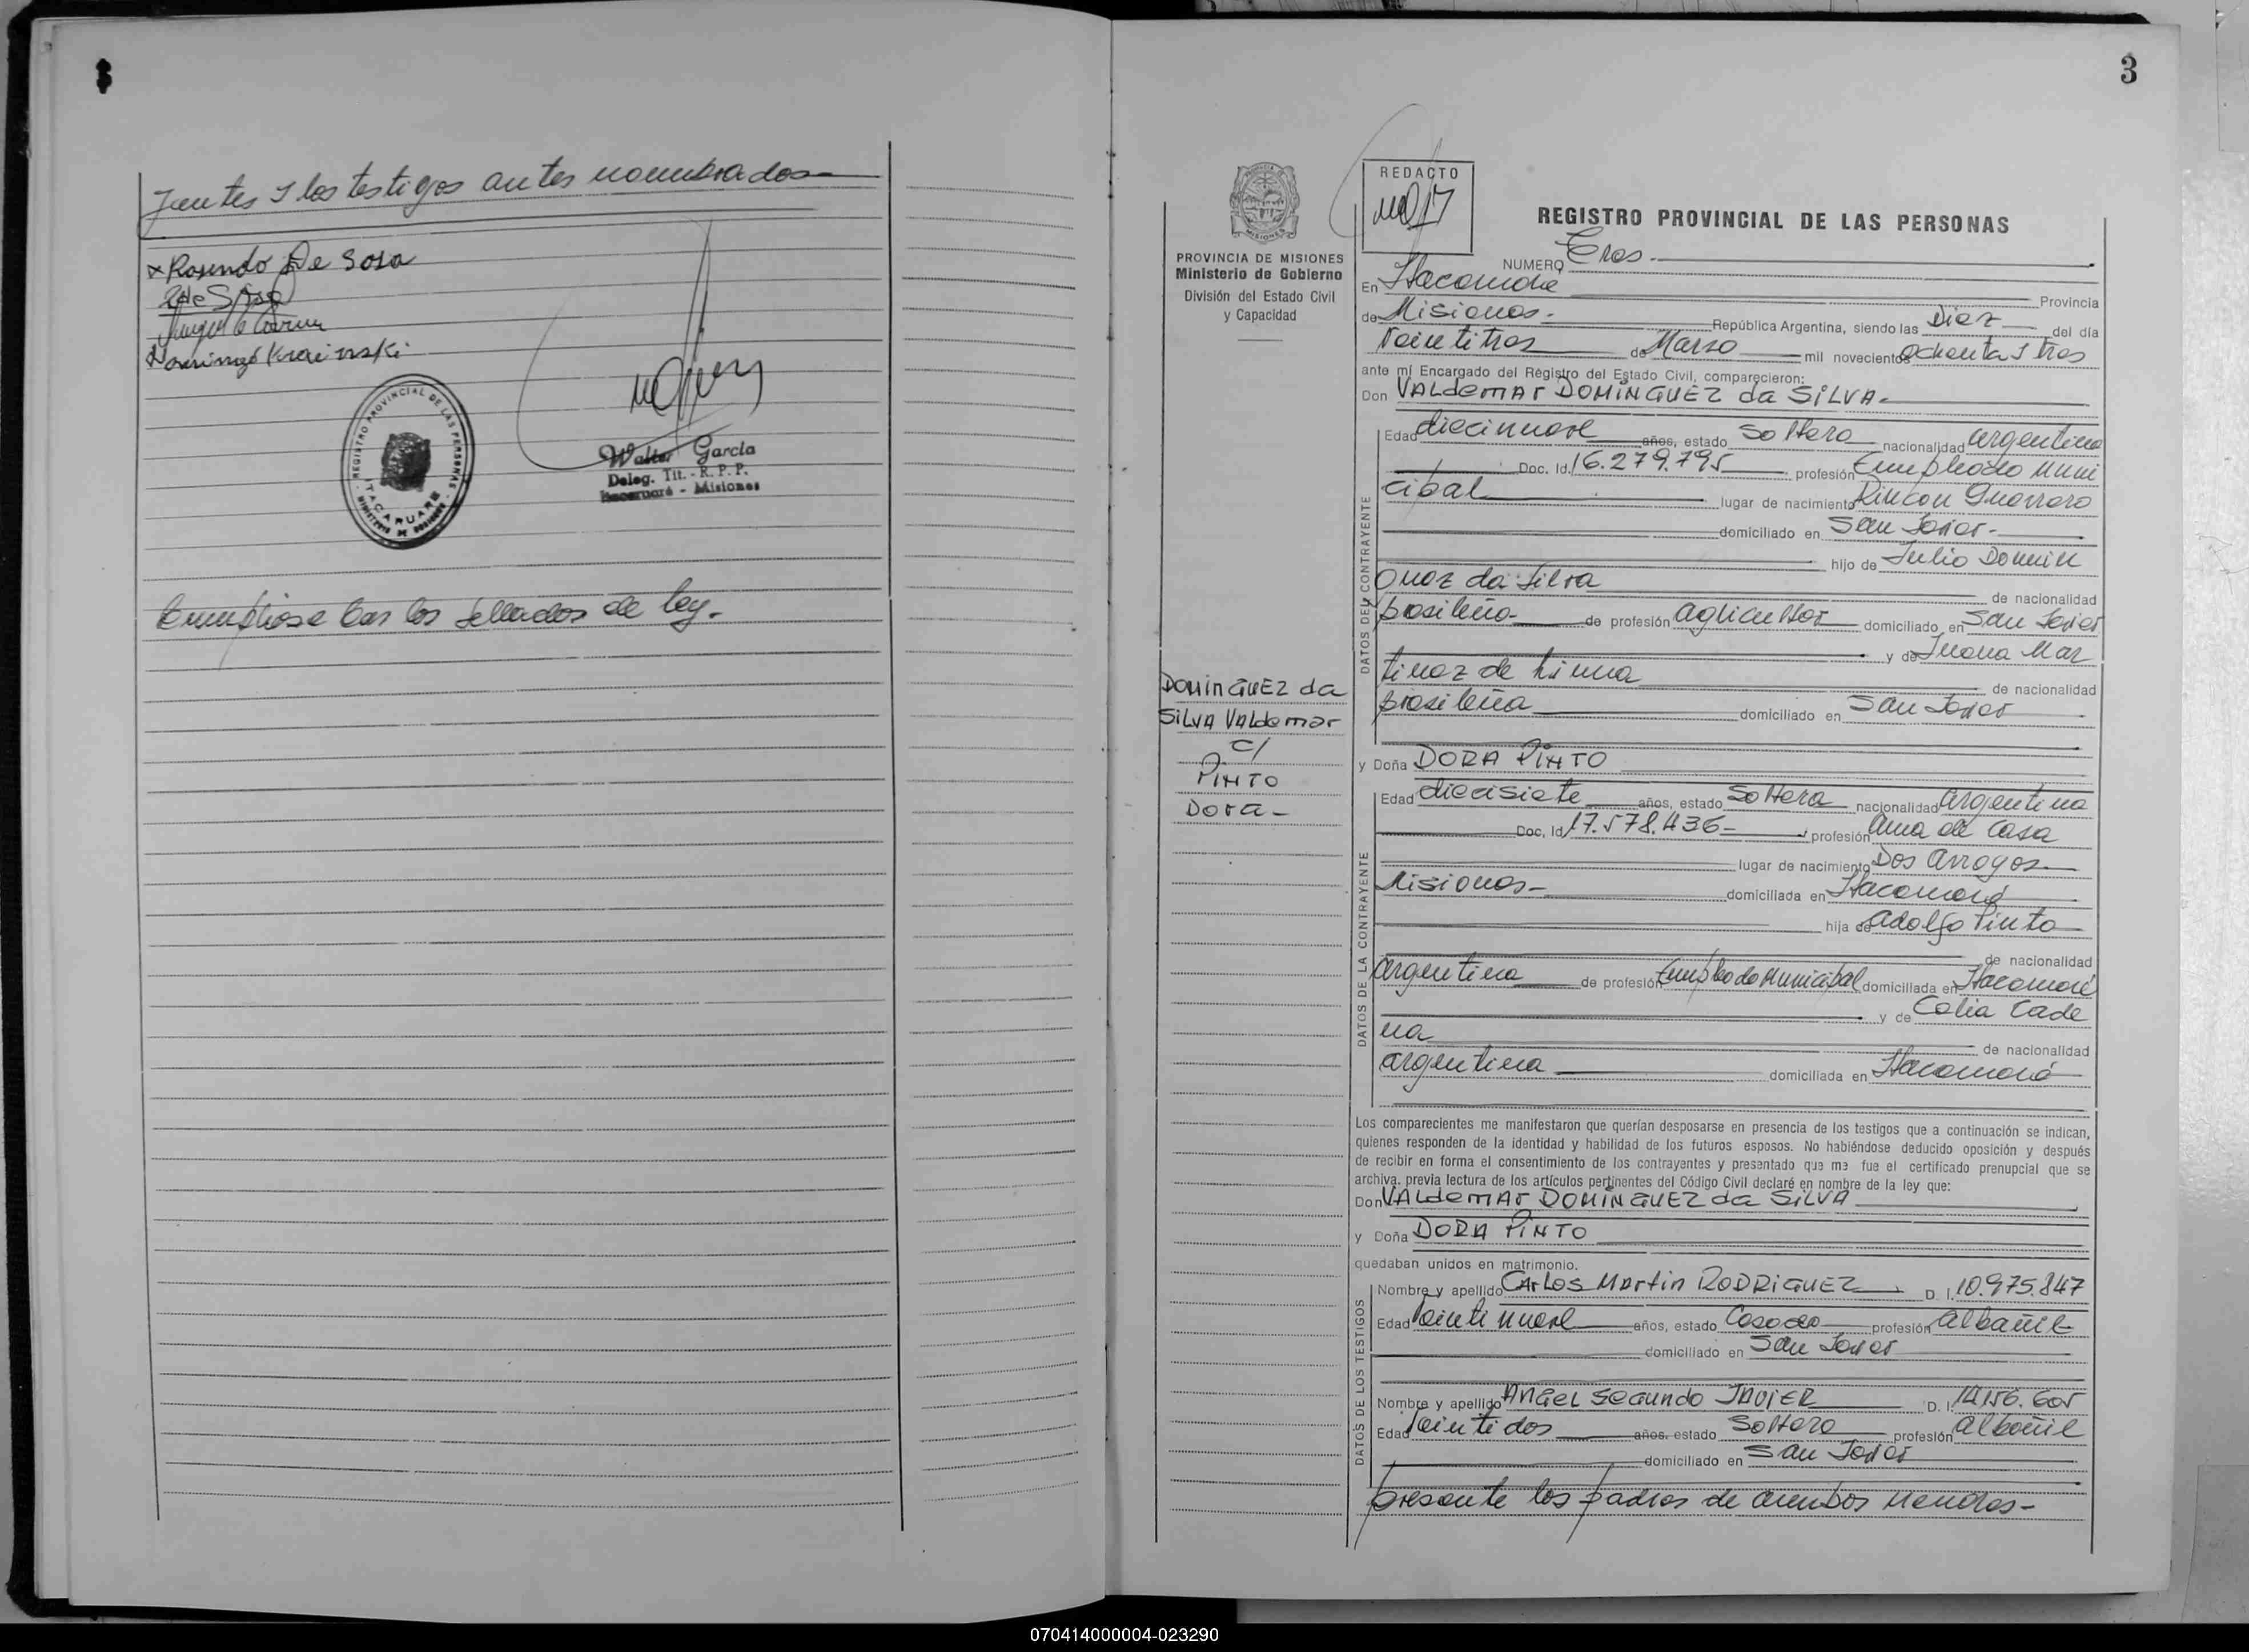 3
Juntos y los testigos antes nombrados
x Rosendo De Sosa
R de Sosa
Domingo Krainski
REGISTRO PROVINCIAL DE LAS PERSONAS
ITACARUARE
MINISTERIO DE GOBIERNO
Walter García
Deleg. Tit. - R. P. P.
Itacaruaré - Misiones
Cumpliose con los sellados de ley.
PROVINCIA DE MISIONES
Ministerio de Gobierno
División del Estado Civil
y Capacidad
DOMINGUEZ da
SILVA VALdemar
c/
PINTO
Dora-
REDACTO
REGISTRO PROVINCIAL DE LAS PERSONAS
NUMERO Tres.
En Itacaruaré Provincia
de Misiones. República Argentina, siendo las Diez del día
Veintitres de Marzo mil novecientos ochenta y tres
ante mí Encargado del Registro del Estado Civil, comparecieron:
Don VALdemAr DOMINGUEZ da SILVA.
DATOS DEL CONTRAYENTE
Edad diecinueve años, estado Soltero nacionalidad argentina
Doc. Id. 16.279.795 profesión Empleado Muni
cipal lugar de nacimiento Rincon Guerrero
domiciliado en San Javier.
hijo de Julio Domin
guez da Silva de nacionalidad
brasileña de profesión agricultor domiciliado en San Javier
y de Juana Mar
tinez de Lima de nacionalidad
brasileña domiciliado en San Javier
y Doña DORA PINTO
DATOS DE LA CONTRAYENTE
Edad diecisiete años, estado Soltera nacionalidad argentina
Doc. Id. 17.578.436 profesión ama de casa
lugar de nacimiento Dos Arroyos
Misiones domiciliada en Itacaruaré
hija de Adolfo Pinto
de nacionalidad
argentina de profesión Empleado Municipal domiciliada en Itacaruaré
y de Celia Cade
na de nacionalidad
argentina domiciliada en Itacaruaré
Los comparecientes me manifestaron que querían desposarse en presencia de los testigos que a continuación se indican,
quienes responden de la identidad y habilidad de los futuros esposos. No habiéndose deducido oposición y después
de recibir en forma el consentimiento de los contrayentes y presentado que me fue el certificado prenupcial que se
archiva, previa lectura de los artículos pertinentes del Código Civil declaré en nombre de la ley que:
Don VALdemAr DOMINGUEZ da SILVA
y Doña DORA PINTO
quedaban unidos en matrimonio.
DATOS DE LOS TESTIGOS
Nombre y apellido CArLos Martin RODRIGUEZ D. I. 10.975.847
Edad Veinti nueve años, estado Casado profesión albañil
domiciliado en San Javier
Nombre y apellido ANGEL SEGUNDO JAVIER D. I. 14.156.605
Edad Veintidos años, estado Soltero profesión albañil
domiciliado en San Javier
presente los padres de ambos menores-
070414000004-023290